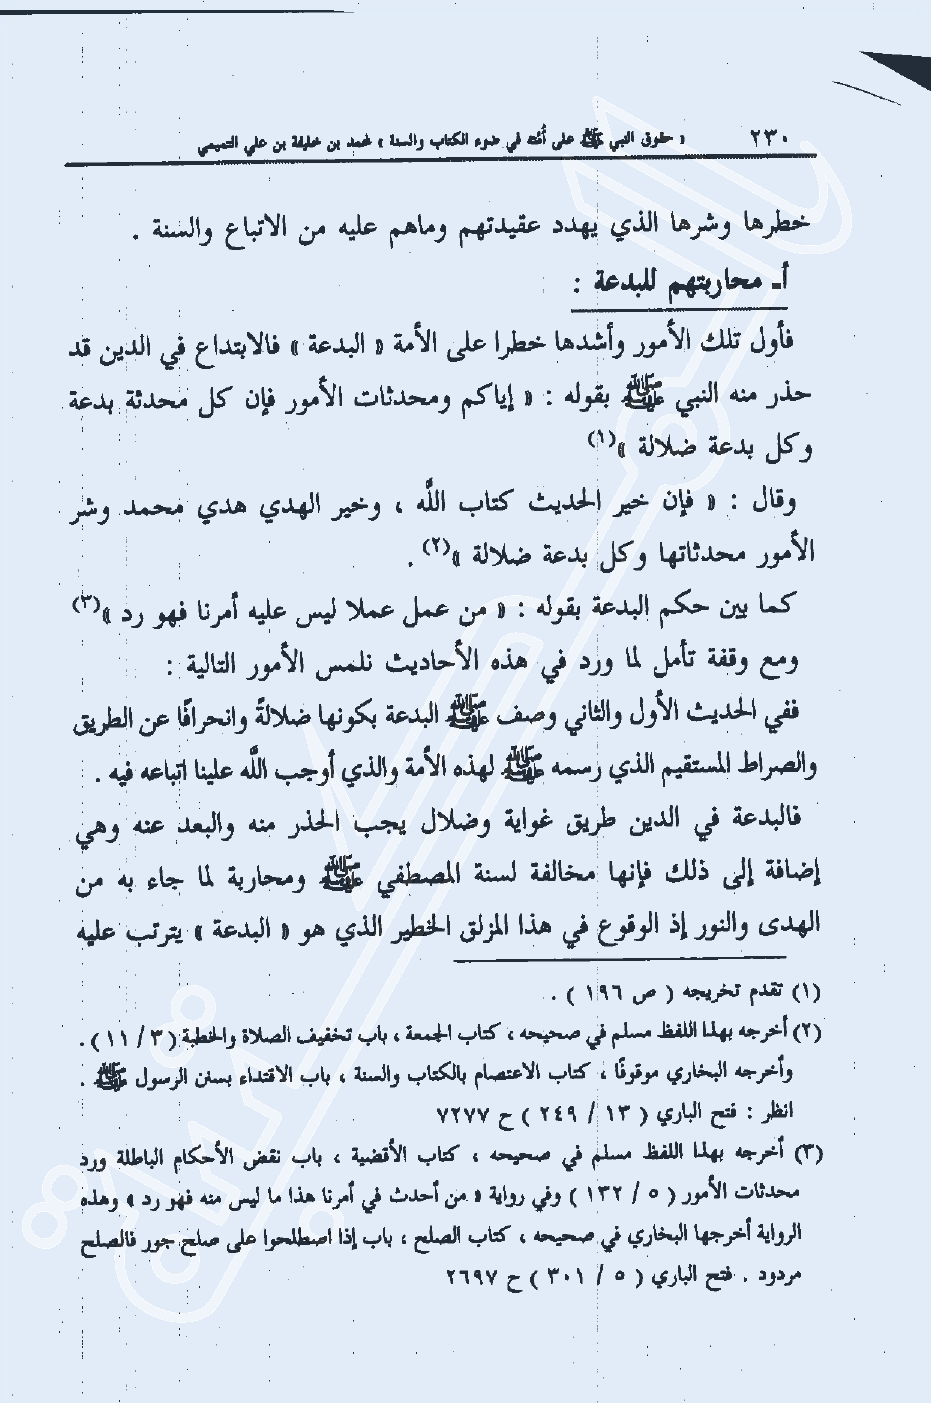 ٢٣٠ « حقوق النبي ﷺ على أُمَّته في ضوء الكتاب والسنة » لمحمد بن خليفة بن علي التميمي
خطرها وشرها الذي يهدد عقيدتهم وماهم عليه من الاتباع والسنة .
أـ محاربتهم للبدعة :
فأول تلك الأمور وأشدها خطرا على الأمة « البدعة » فالابتداع في الدين قد
حذر منه النبي ﷺ بقوله : « إياكم ومحدثات الأمور فإن كل محدثة بدعة
وكل بدعة ضلالة »(١)
وقال : « فإن خير الحديث كتاب اللَّه ، وخير الهدي هدي محمد وشر
الأمور محدثاتها وكل بدعة ضلالة »(٢) .
كما بين حكم البدعة بقوله : « من عمل عملا ليس عليه أمرنا فهو رد »(٣)
ومع وقفة تأمل لما ورد في هذه الأحاديث نلمس الأمور التالية :
ففي الحديث الأول والثاني وصف ﷺ البدعة بكونها ضلالةً وانحرافًا عن الطريق
والصراط المستقيم الذي رسمه ﷺ لهذه الأمة والذي أوجب اللَّه علينا اتباعه فيه .
فالبدعة في الدين طريق غواية وضلال يجب الحذر منه والبعد عنه وهي
إضافة إلى ذلك فإنها مخالفة لسنة المصطفي ﷺ ومحاربة لما جاء به من
الهدى والنور إذ الوقوع في هذا المزلق الخطير الذي هو « البدعة » يترتب عليه
(١) تقدم تخريجه ( ص ١٩٦ ) .
(٢) أخرجه بهذا اللفظ مسلم في صحيحه ، كتاب الجمعة ، باب تخفيف الصلاة والخطبة ( ٣ / ١١ ) .
وأخرجه البخاري موقوفًا ، كتاب الاعتصام بالكتاب والسنة ، باب الاقتداء بسنن الرسول ﷺ .
انظر : فتح الباري ( ١٣ / ٢٤٩ ) ح ٧٢٧٧
(٣) أخرجه بهذا اللفظ مسلم في صحيحه ، كتاب الأقضية ، باب نقض الأحكام الباطلة ورد
محدثات الأمور ( ٥ / ١٣٢ ) وفي رواية « من أحدث في أمرنا هذا ما ليس منه فهو رد » وهذه
الرواية أخرجها البخاري في صحيحه ، كتاب الصلح ، باب إذا اصطلحوا على صلح جور فالصلح
مردود . فتح الباري ( ٥ / ٣٠١ ) ح ٢٦٩٧